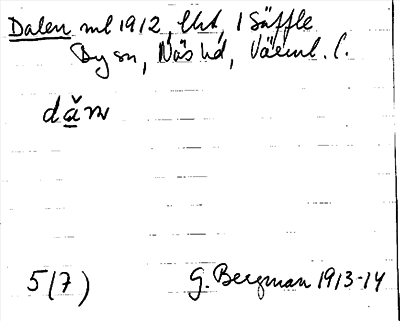 Dalen ml 1912, Uts, 1 Säffle
By sn, Näs hd, Värml. l.
dǎn
5(7) G. Bergman 1913-14